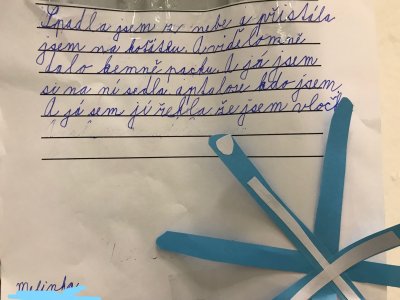 Spadla jsem z nebe a přistála
jsem na koťátku. A viďelomně
dalo kemně packu. A já jsem
si na ní sedla aptalose kdo jsem.
A já sem jí řekla že jsem vločk
Melinka